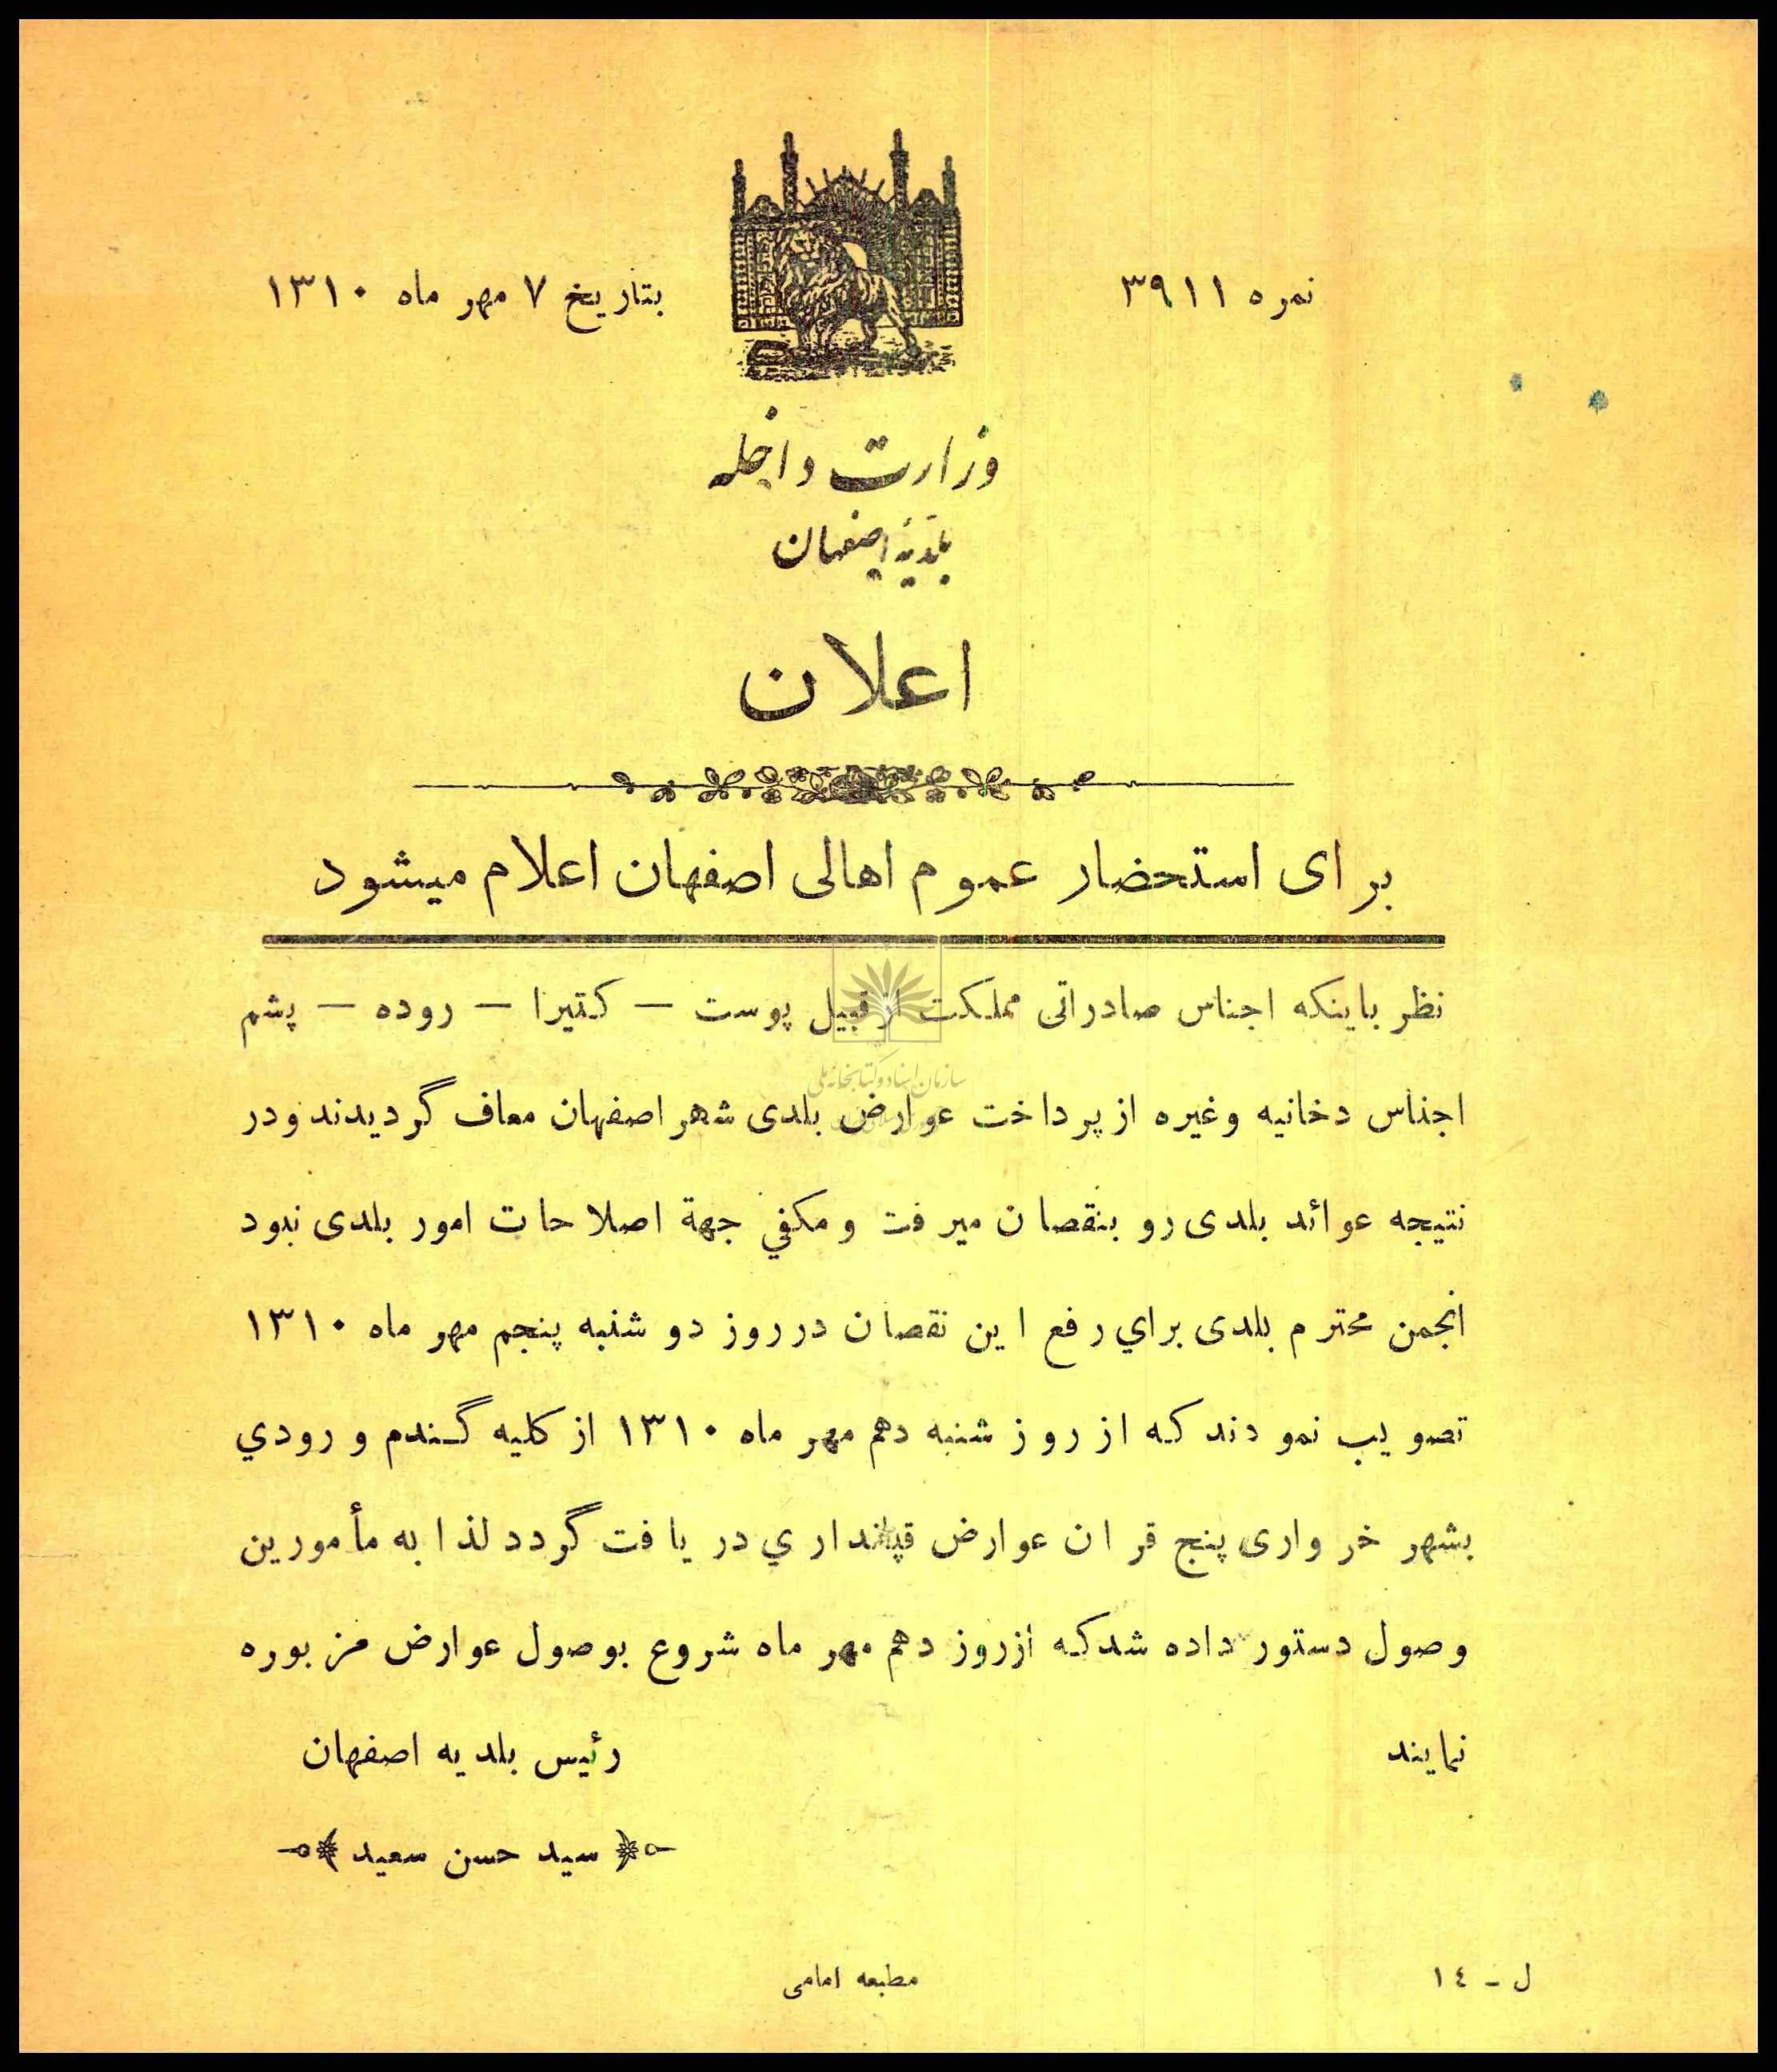 نمره ۳۹۱۱
بتاریخ ۷ مهر ماه ۱۳۱۰
وزارت داخله
بلدیهٔ اصفهان
اعلان
برای استحضار عموم اهالی اصفهان اعلام میشود
نظر باینکه اجناس صادراتی مملکت از قبیل پوست — کتیرا — روده — پشم
سازمان اسناد و کتابخانه ملی
اجناس دخانیه وغیره از پرداخت عوارض بلدی شهر اصفهان معاف گردیدند ودر
نتیجه عوائد بلدی رو بنقصان میرفت ومکفي جهة اصلاحات امور بلدی نبود
انجمن محترم بلدی براي رفع این نقصان در روز دو شنبه پنجم مهر ماه ۱۳۱۰
تصویب نمودند که از روز شنبه دهم مهر ماه ۱۳۱۰ از کلیه گندم و رودي
بشهر خرواری پنج قران عوارض قپانداري دریافت گردد لذا به مأمورین
وصول دستور داده شدکه ازروز دهم مهر ماه شروع بوصول عوارض مزبوره
نمایند
رئیس بلدیه اصفهان
سید حسن سعید
ل - ١٤
مطبعه امامی